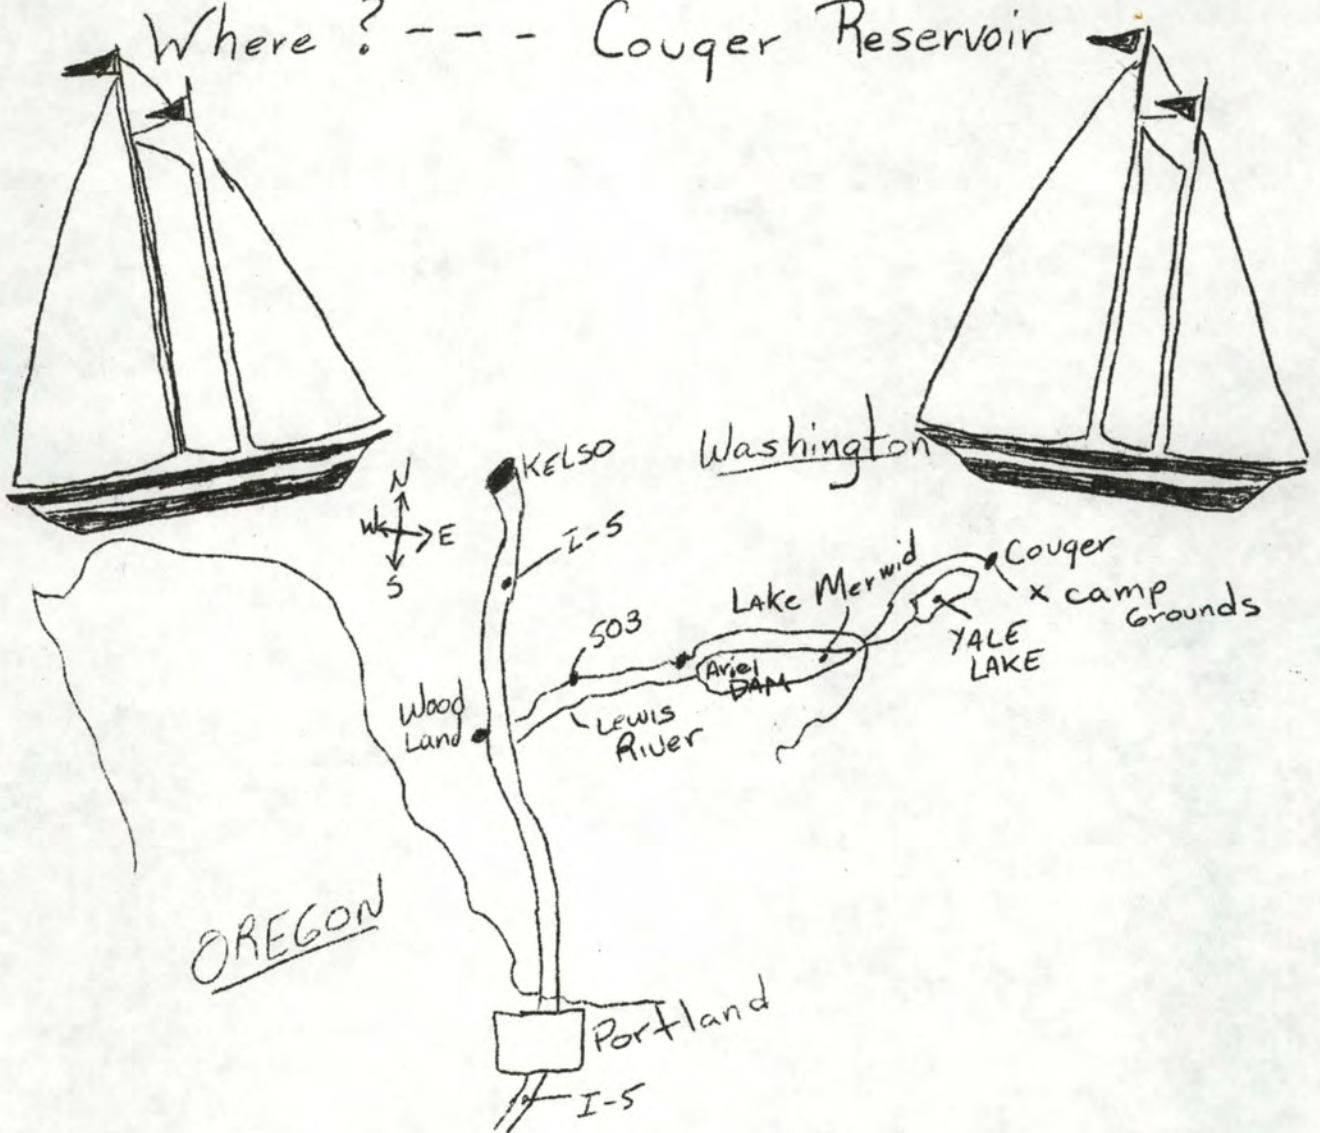 Where ? - - - Couger Reservoir
Washington
KELSO
N
W E
S
I-5
Couger
x camp
Grounds
Lake Merwid
503
YALE
LAKE
Ariel
DAM
Wood
Land
Lewis
River
OREGON
Portland
I-5